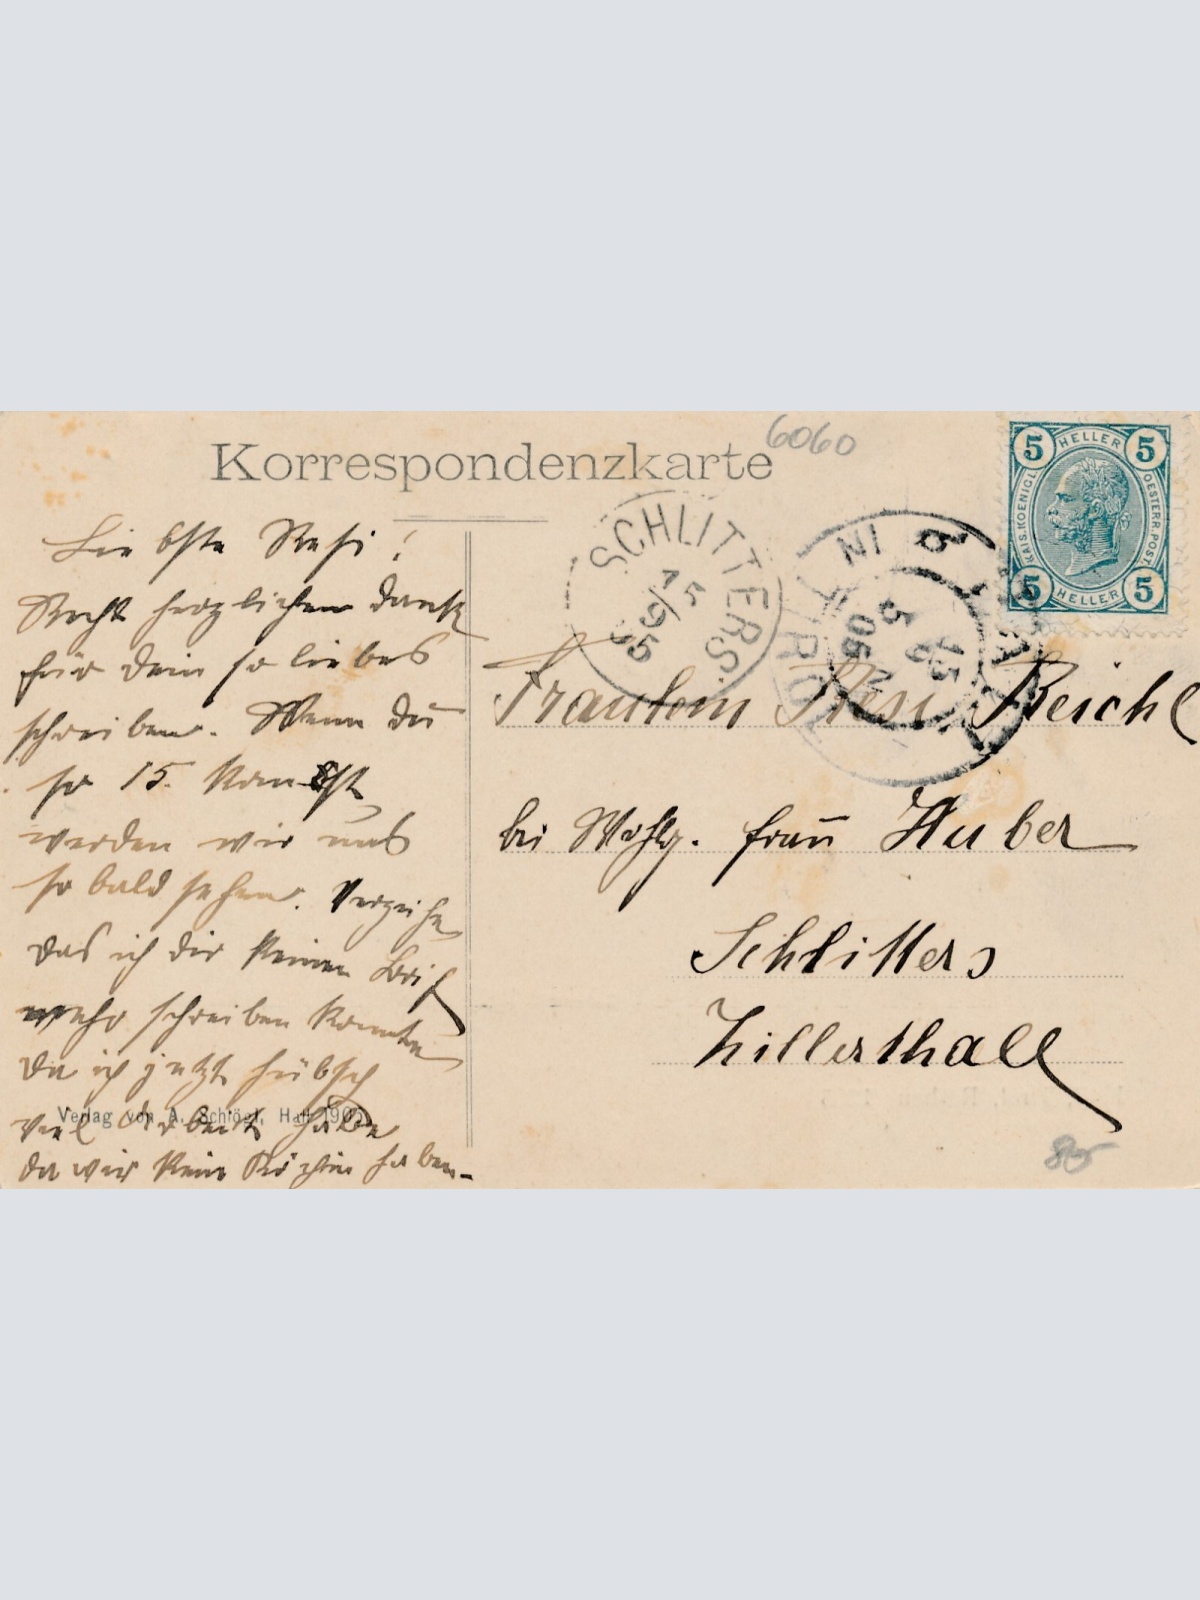 Korrespondenzkarte
6060
5 HELLER 5
KAIS. KOENIGL. OESTERR. POST
5 HELLER 5
SCHLITTERS.
15
9
HALL IN TIROL
15 9
05
Liebste Resi!
Recht herzlichen Dank
für dein so liebes
schreiben. Wenn du
so 15. komst
werden wir uns
so bald sehen. Verzeihe
das ich dir keinen Brief
mehr schreiben konnte
da ich jetzt hübsch
viel Arbeit habe
da wir kein Köchin haben-
Fräulein Resi Reichl
bei Wohlg. Frau Huber
Schlitters
Zillerthall
Verlag von A. Schlögl, Hall 1905